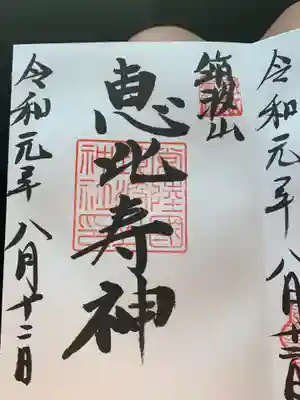 令和元年八月十二日
筑波山
恵比寿神
令和元年八月十二日